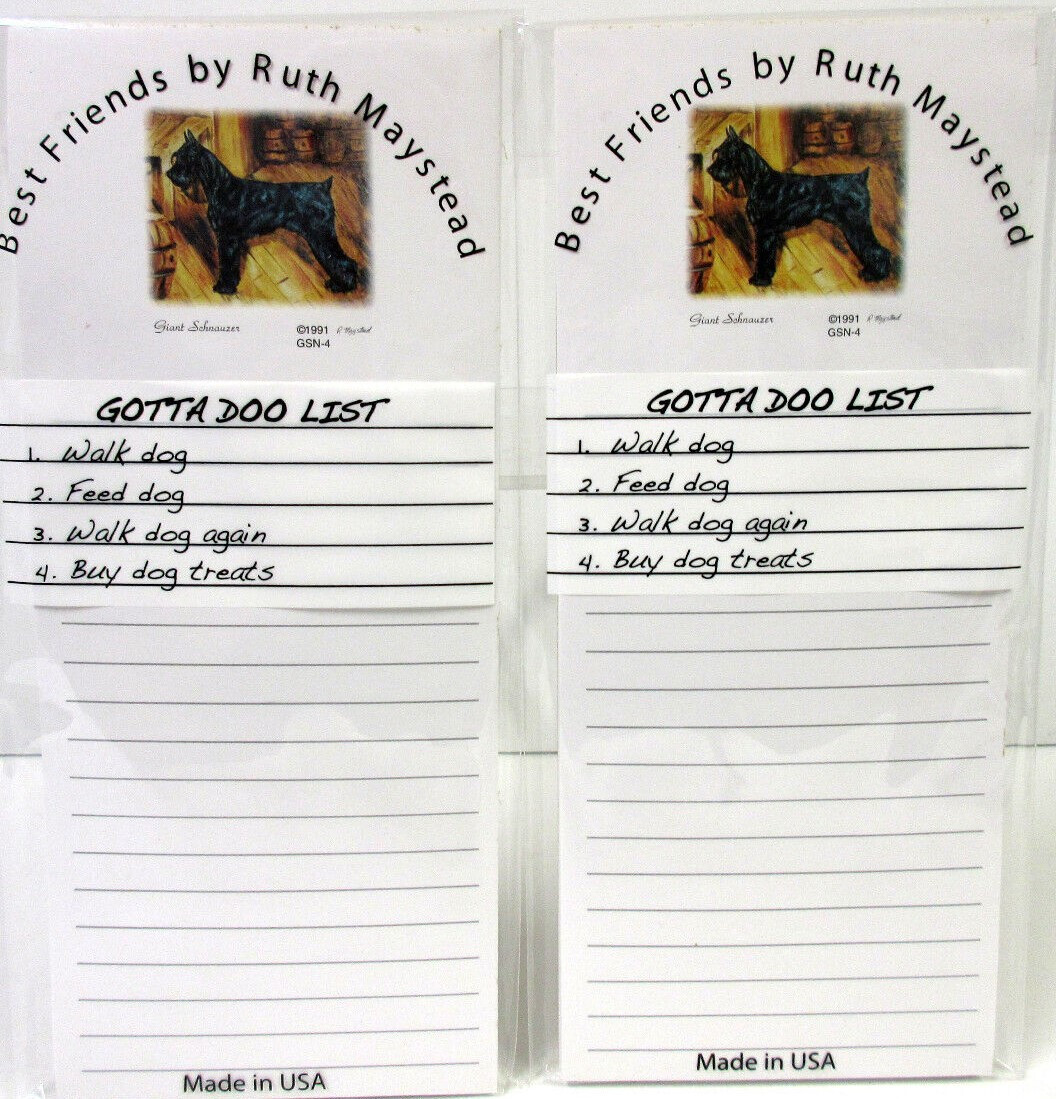 Best Friends by Ruth Maystead
Giant Schnauzer ©1991 R Maystead
GSN-4
GOTTA DOO LIST
1. Walk dog
2. Feed dog
3. Walk dog again
4. Buy dog treats
Made in USA
Best Friends by Ruth Maystead
Giant Schnauzer ©1991 R Maystead
GSN-4
GOTTA DOO LIST
1. Walk dog
2. Feed dog
3. Walk dog again
4. Buy dog treats
Made in USA